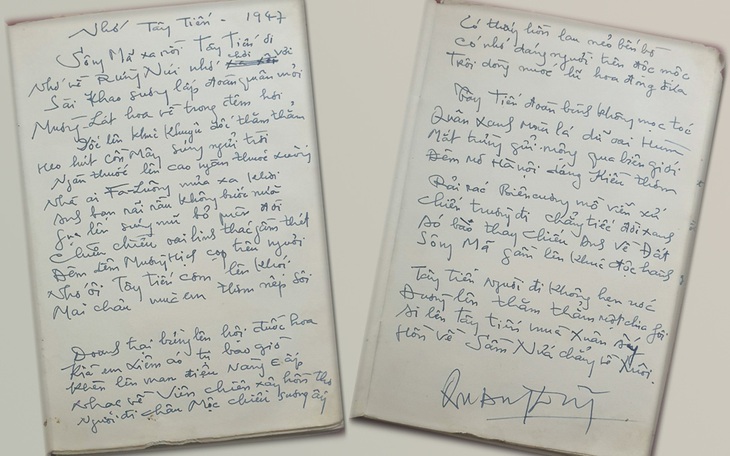 Nhớ Tây Tiến - 1947
Sông Mã xa rồi Tây Tiến ơi
Nhớ về Rừng Núi nhớ chơi vơi
Sài Khao sương lấp đoàn quân mỏi
Mường Lát hoa về trong đêm hơi
Dốc lên khúc khuỷu dốc thăm thẳm
Heo hút cồn Mây súng ngửi trời
Ngàn thước lên cao ngàn thước xuống
Nhà ai Fa-Luông mưa xa khơi
Anh bạn rãi rầu không bước nữa
Gục lên súng mũ bỏ quên đời
Chiều chiều oai linh thác gầm thét
Đêm đêm Mường Hịch cọp trêu người
Nhớ ôi Tây Tiến cơm lên khói
Mai Châu mùa em thơm nếp xôi
Doanh trại bừng lên hội đuốc hoa
Kìa em xiêm áo tự bao giờ
Khèn lên man điệu Nàng E ấp
Nhạc về Viên Chiên xây hồn thơ
Người đi Châu Mộc chiều sương ấy
Có thấy hồn lau nẻo bến bờ
Có nhớ dáng người trên độc mộc
Trôi dòng nước lũ hoa đong đưa
Tây Tiến đoàn binh không mọc tóc
Quân xanh màu lá dữ oai Hùm
Mắt trừng gửi mộng qua biên giới
Đêm mơ Hà Nội dáng Kiều thơm
Rải rác Biên cương mồ viễn xứ
Chiến trường đi chẳng tiếc đời xanh
Áo bào thay chiếu Anh về Đất
Sông Mã gầm lên khúc độc hành
Tây Tiến người đi không hẹn ước
Đường lên thăm thẳm một chia phôi
Ai lên Tây Tiến mùa Xuân ấy
Hồn về Sầm Nứa chẳng về Xuôi.
Quang Dũng